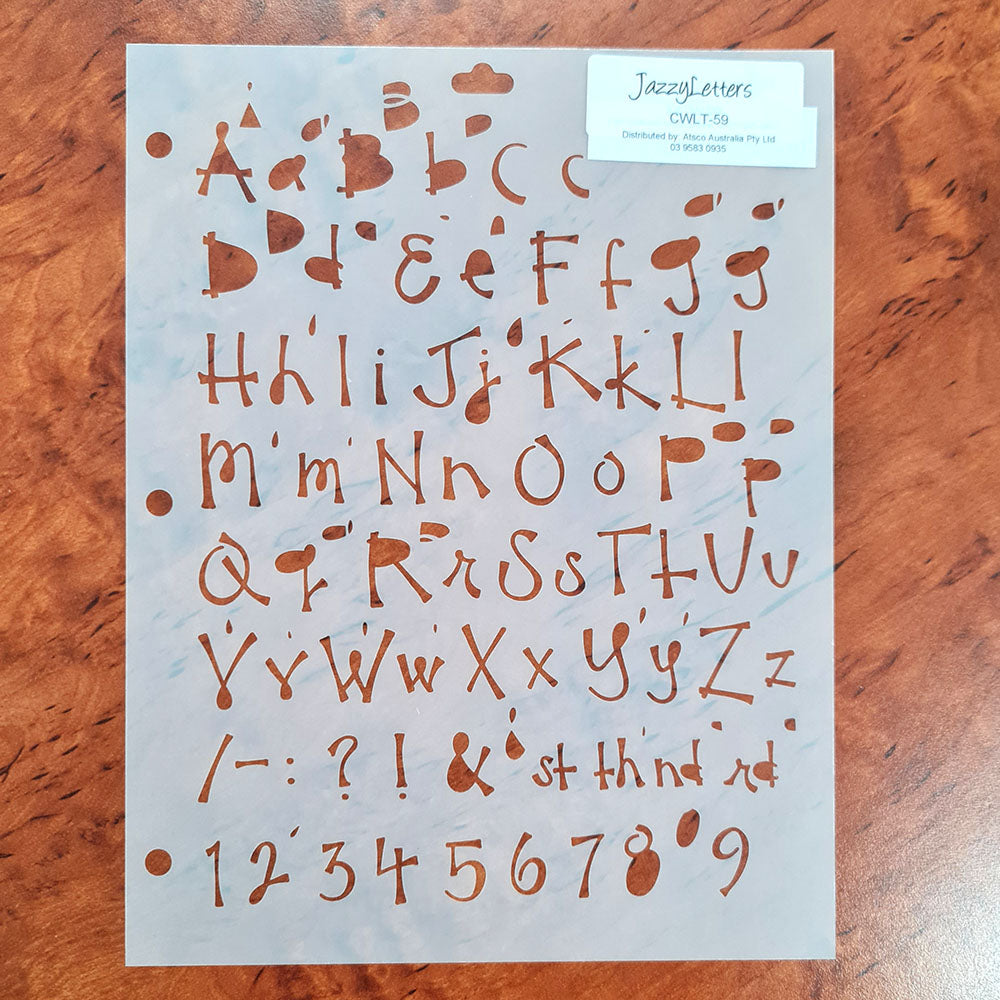 JazzyLetters
CWLT-59
Distributed by: Atsco Australia Pty Ltd
03 9583 0935
A a B b C c
D d E e F f G g
H h I i J j K k L l
M m N n O o P p
Q q R r S s T t U u
V v W w X x Y y Z z
/ - : ? ! & ' st th nd rd
1 2 3 4 5 6 7 8 9